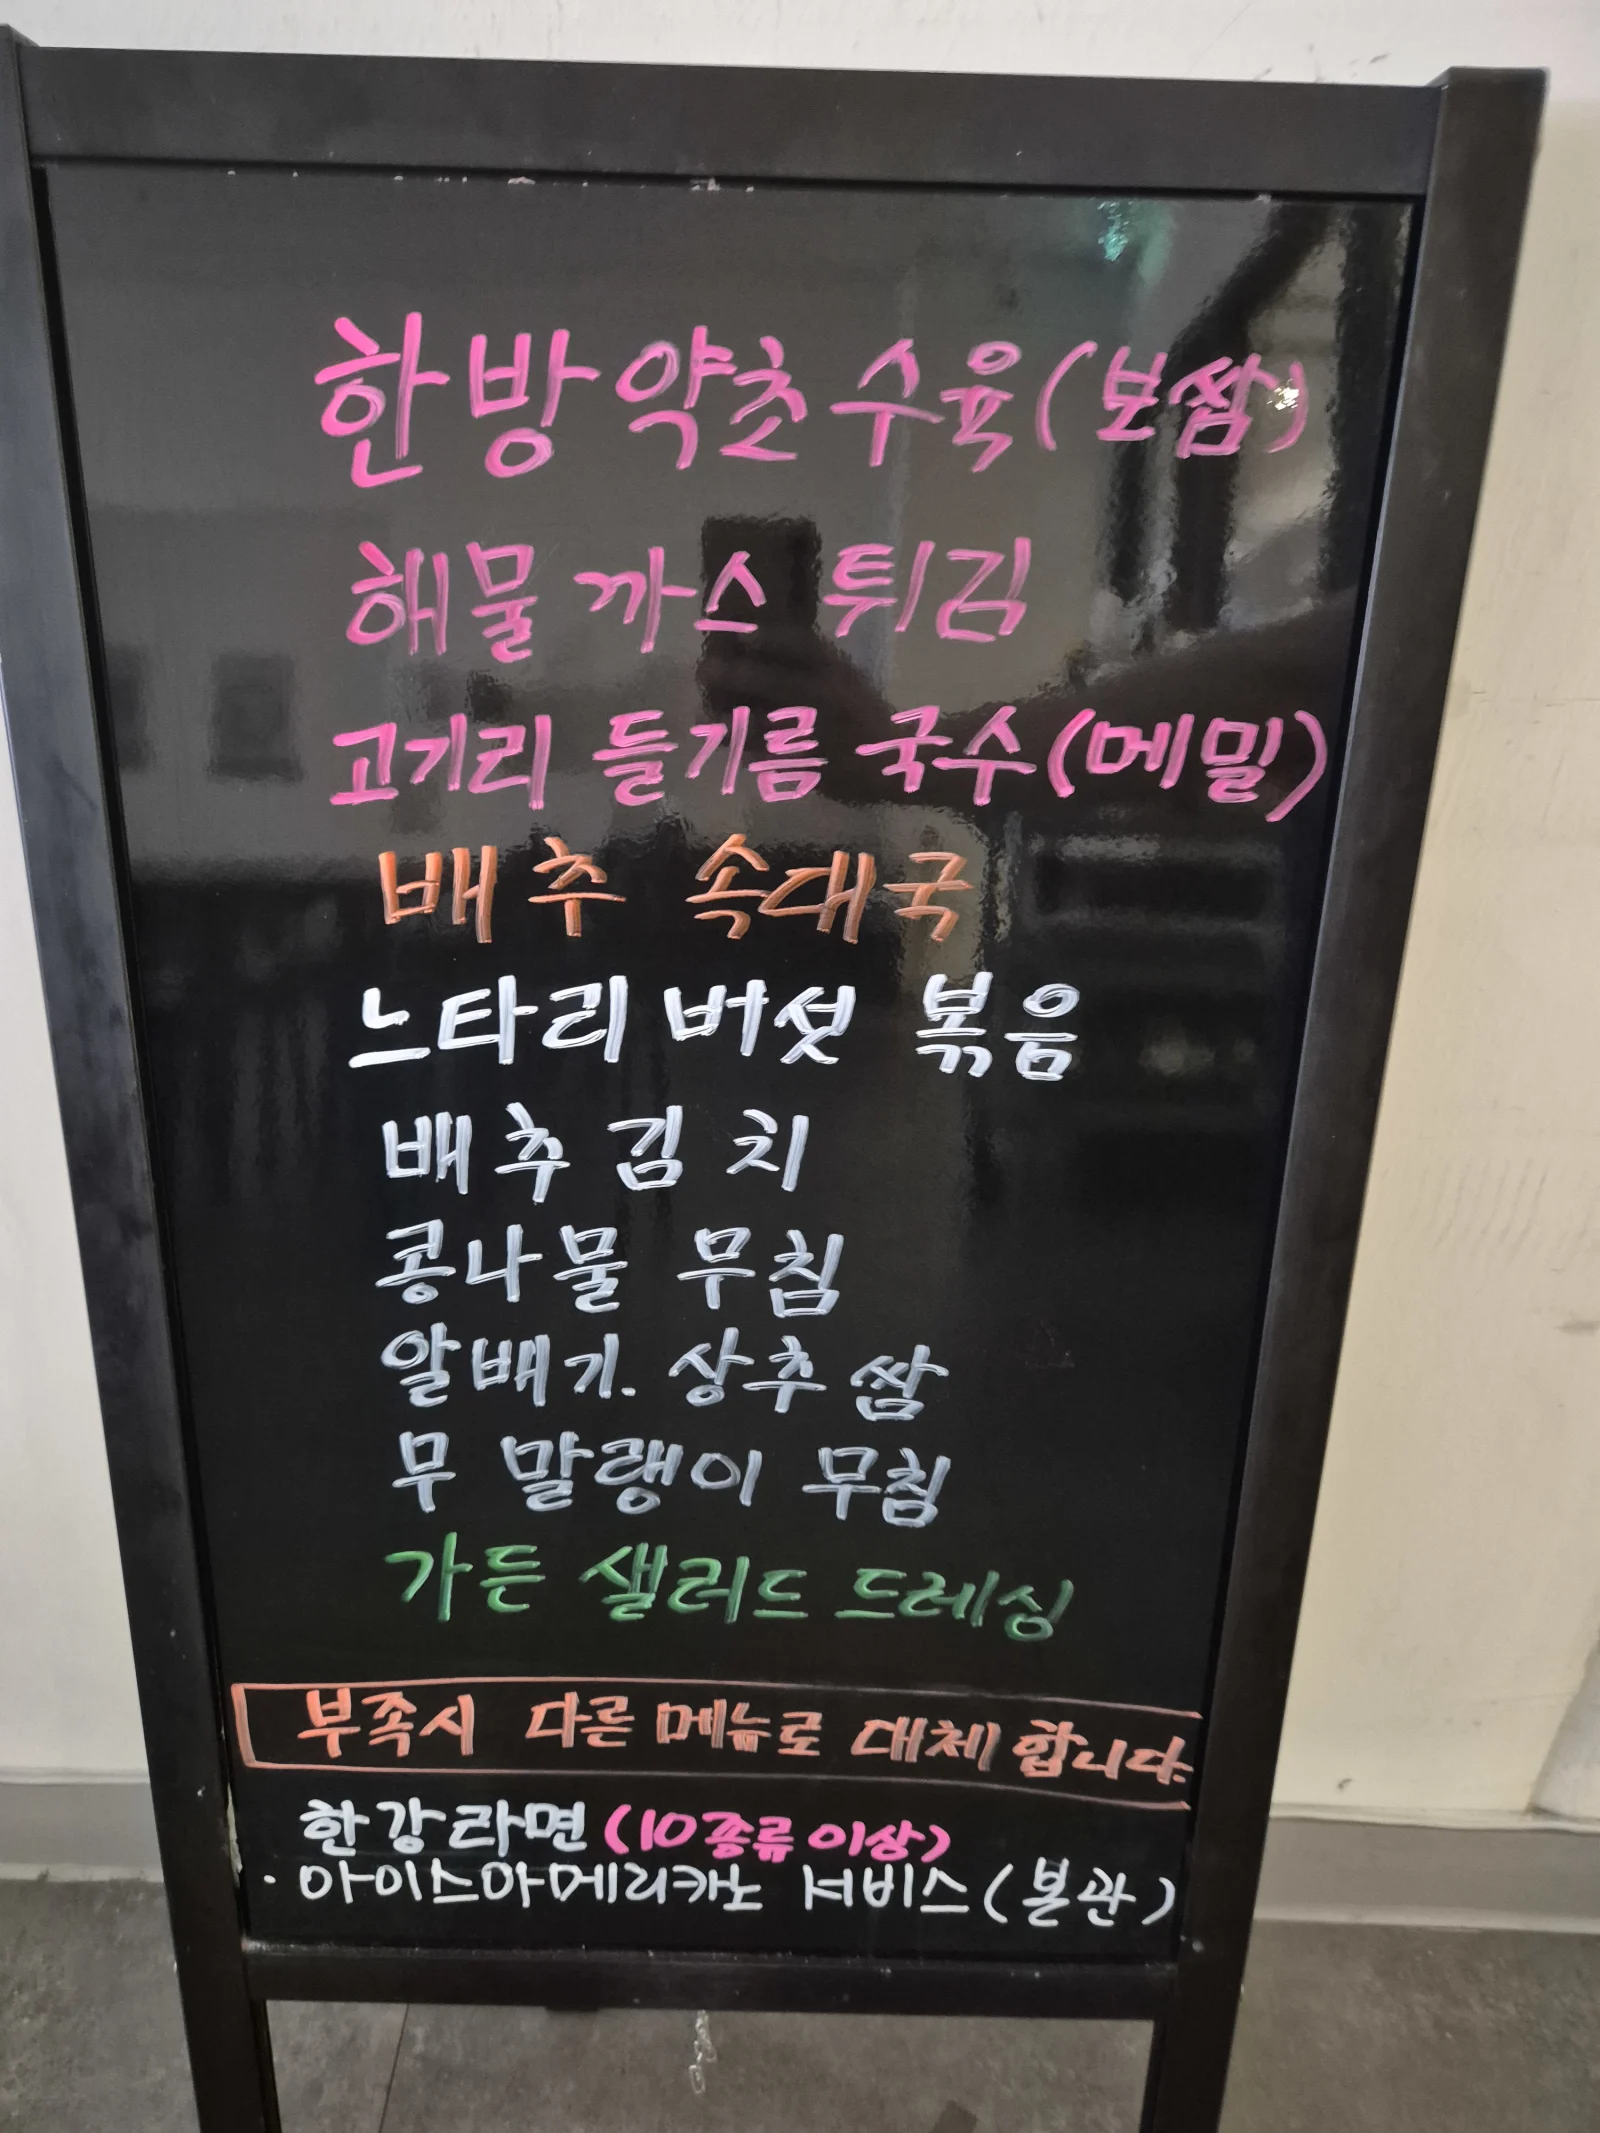 한방약초수육(보쌈)
해물까스 튀김
고기리 들기름 국수(메밀)
배추 속대국
느타리버섯 볶음
배추김치
콩나물 무침
알배기. 상추쌈
무 말랭이 무침
가든 샐러드 드레싱
부족시 다른 메뉴로 대체 합니다.
한강라면 (10종류이상)
· 아이스아메리카노 서비스(본관)